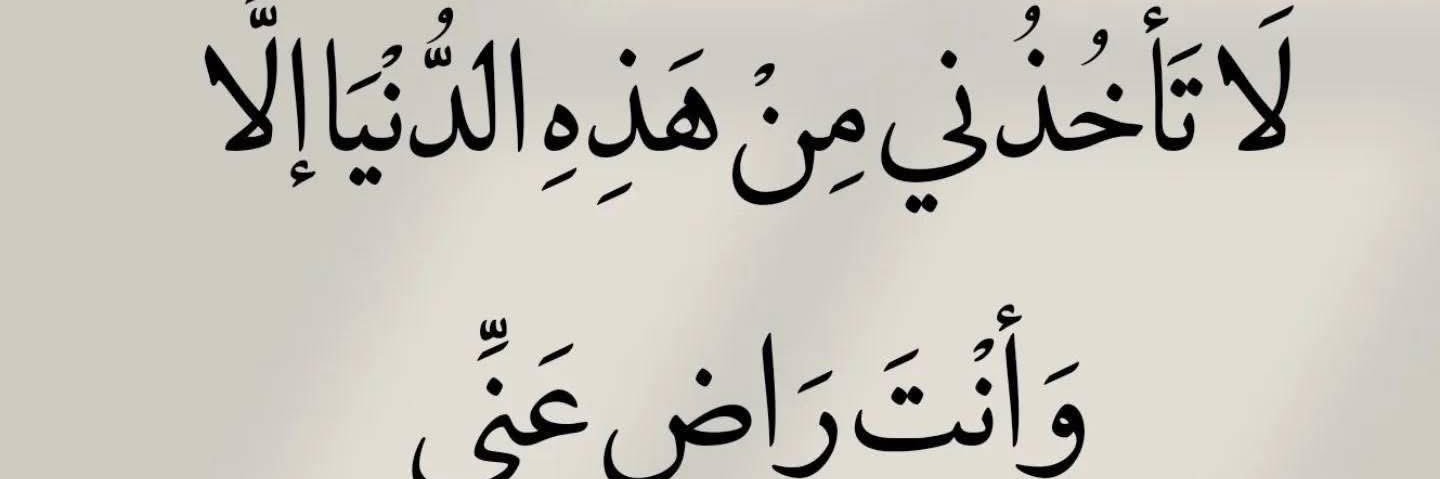 لَا تَأخُذُني مِنْ هَذِهِ الدُّنْيَا إلَّا
وَأنْتَ رَاضٍ عَنِّي